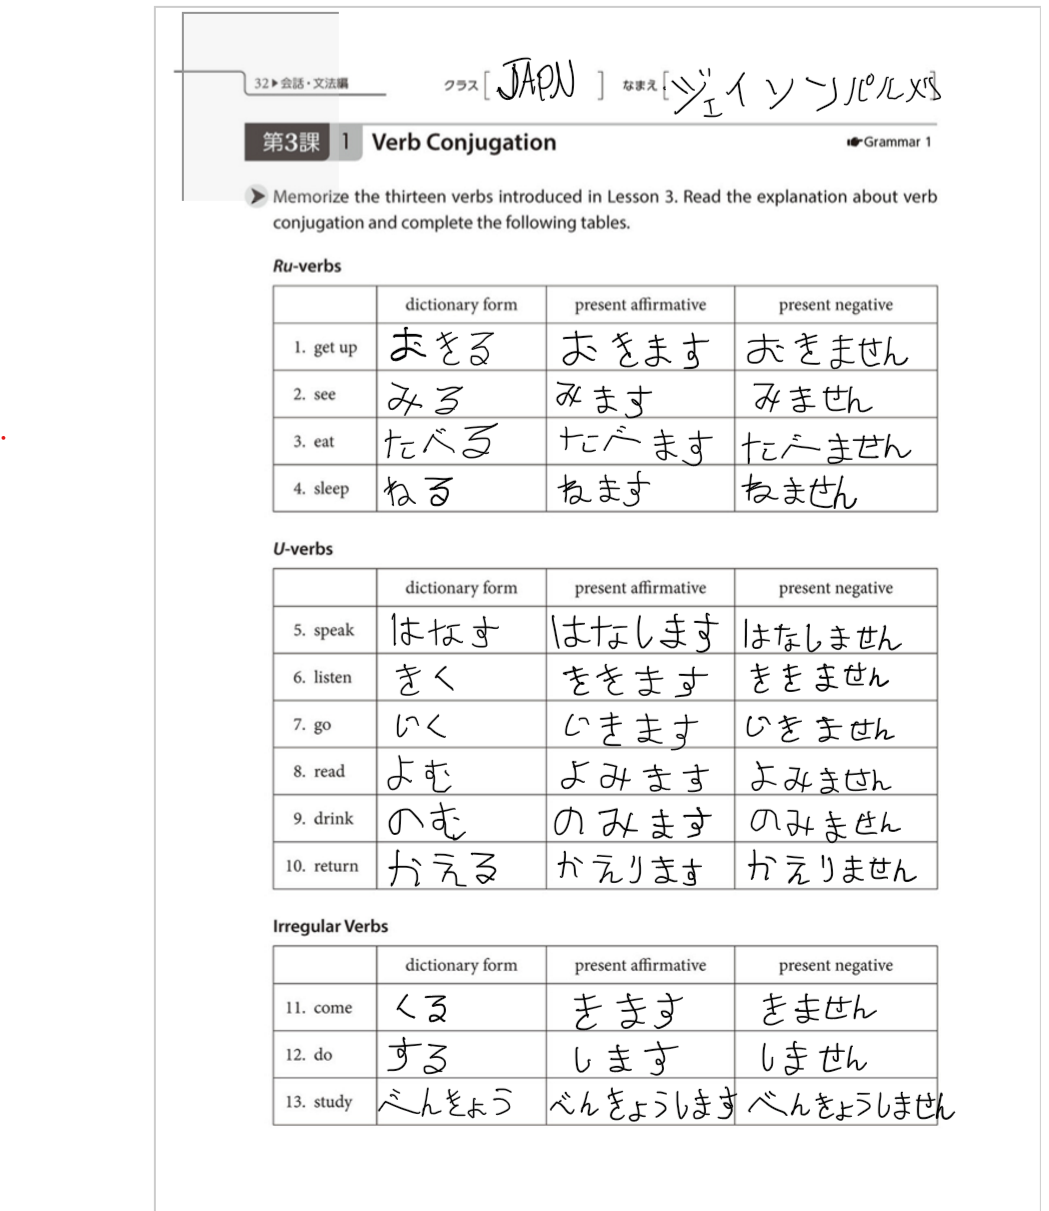 32▶会話・文法編 クラス[JAPN] なまえ[ジェイソンパルメ]
第3課 1 Verb Conjugation ☛Grammar 1
➤Memorize the thirteen verbs introduced in Lesson 3. Read the explanation about verb
conjugation and complete the following tables.
Ru-verbs
dictionary form present affirmative present negative
1. get up おきる おきます おきません
2. see みる みます みません
3. eat たべる たべます たべません
4. sleep ねる ねます ねません
U-verbs
dictionary form present affirmative present negative
5. speak はなす はなします はなしません
6. listen きく ききます ききません
7. go いく いきます いきません
8. read よむ よみます よみません
9. drink のむ のみます のみません
10. return かえる かえります かえりません
Irregular Verbs
dictionary form present affirmative present negative
11. come くる きます きません
12. do する します しません
13. study べんきょう べんきょうします べんきょうしません